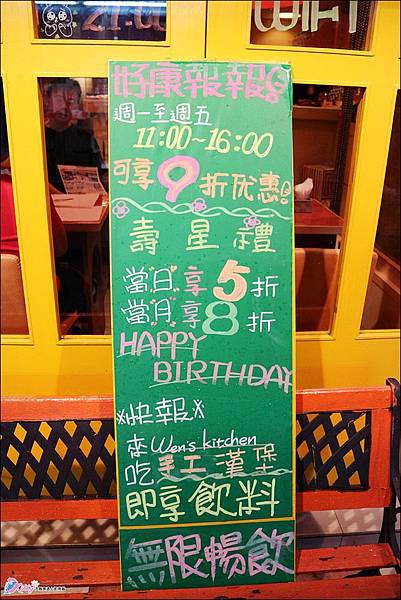 好康報報!
週一至週五
11:00~16:00
可享9折优惠!
壽星禮
當日享5折
當月享8折
HAPPY
BIRTHDAY
※快報※
來Wen's kitchen
吃手工漢堡
即享飲料
無限暢飲